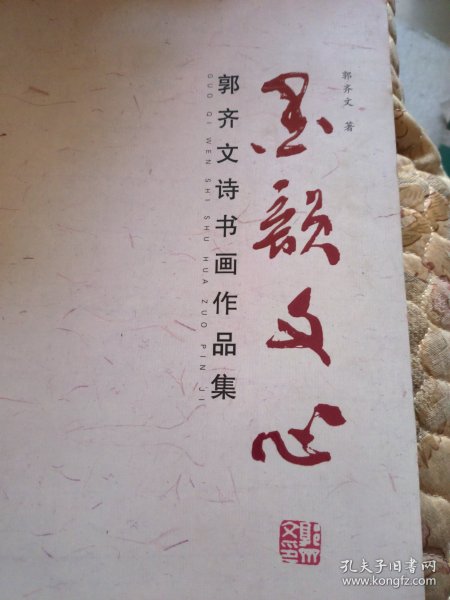 郭齐文 著
墨韻文心
郭齐文诗书画作品集
GUO QI WEN SHI SHU HUA ZUO PIN JI
孔夫子旧书网
www.kongfz.com